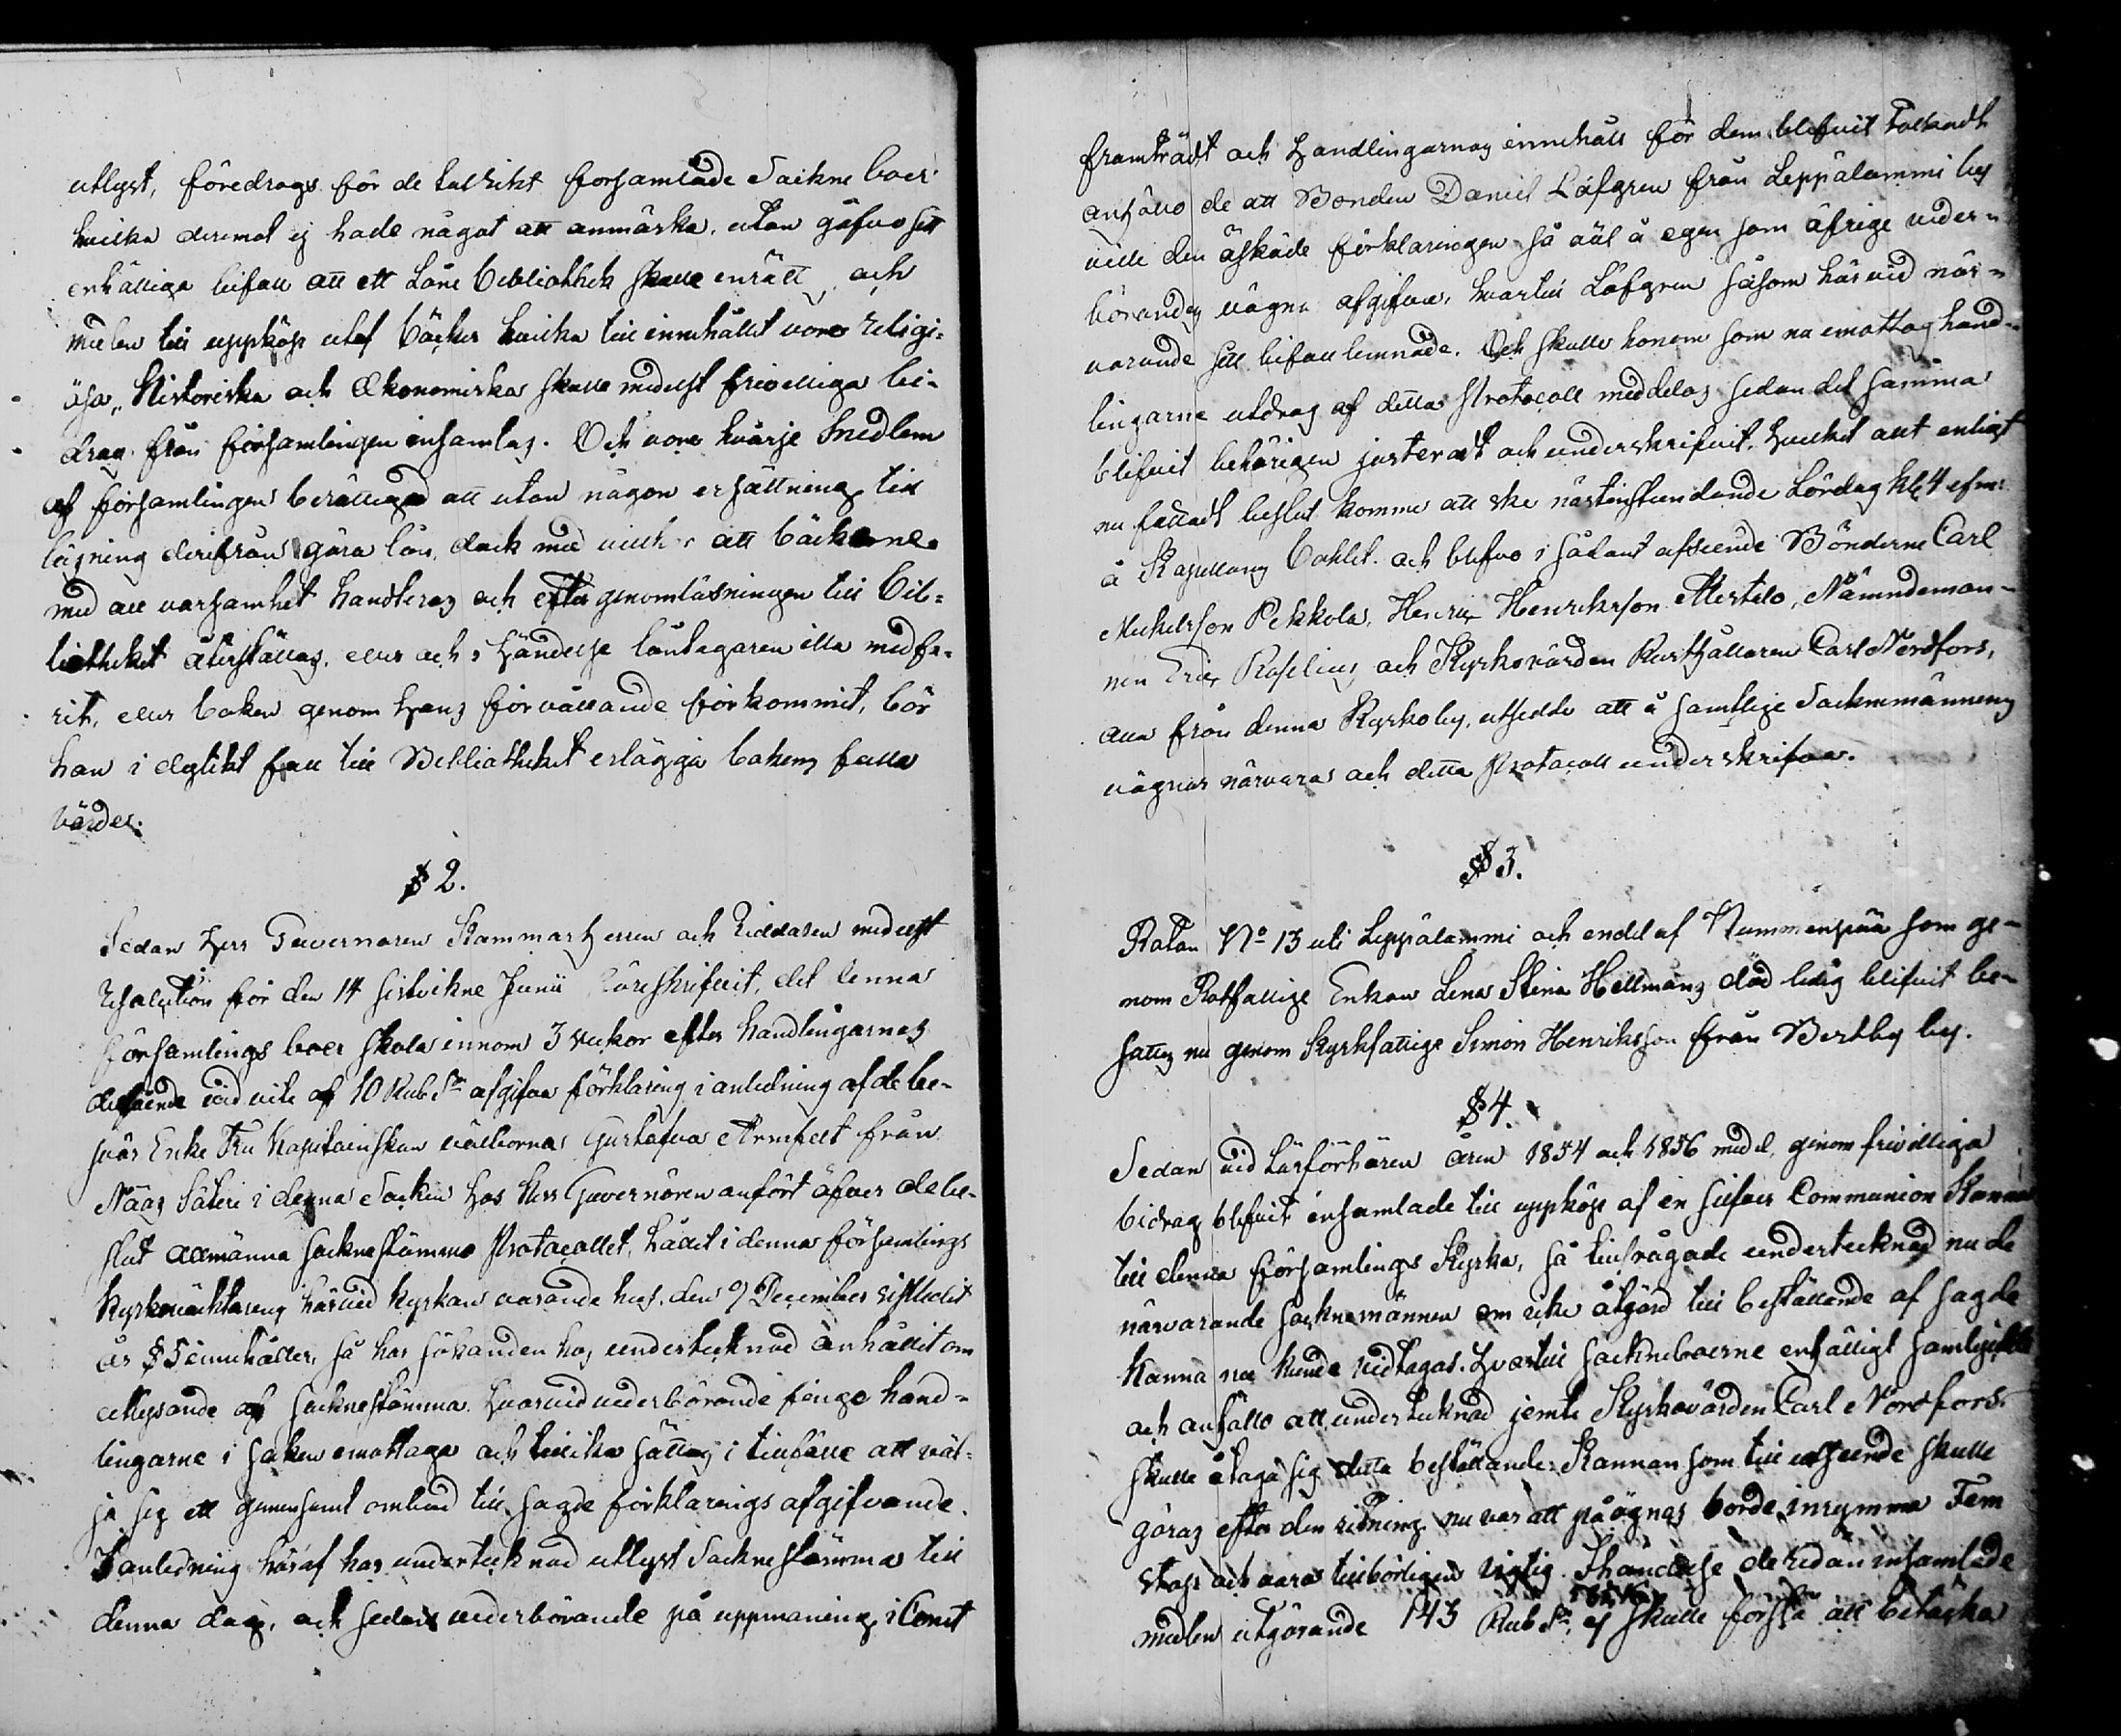 utlyst, föredrogs för de talrikt församlade Sockne boer
hvilka deremot ej hade något att anmärka, utan gåfvo sitt
enhälliga bifall att ett Låne Bibliothek skulle inrätt och
medlen till uppköp utaf böcker hvilka till innehållet vore religi-
ösa, Historiska och Oekonomiska skulle medelst frivilliga bi-
drag från församlingen insamlas. Och vore hvarje medlem
af församlingen berättigad att utan någon ersättning till
lägning derifrån göra lån, dock med vilkor att böckerne
med all varsamhet handteras och efter genomläsningen till Bib-
liotheket återställas, eller och i händelse låntagaren illa medfa-
rit, eller boken genom hans förvållande förkommit, bör
han i dylikt fall till Bibliotheket erlägga bokens fulla
värde.
§ 2.
Sedan Herr Guvernören Kammarherren och Riddaren medelst
Resolution för den 14 sistvikne Junii föreskrifvit, det denna
församlings boer skola innom 3 veckor efter handlingarnes
delfående vid vite af 10 Rub Sr afgifva förklaring i anledning af de be-
svär Enke Fru Kapitainskan välborna Gustafva Armfelt från
Nääs Säteri i denna Socken hos Herr Guvernören anfört öfver de be-
slut allmänna sockne stämmo Protocollet, hållit i denna församlings
kyrkoväktarens härvid kyrkan varande hus, den 9 December sistledit
år § 5 innehåller, så har sökanden hos undertecknad anhållit om
utlysande af socknestämma hvarvid vederbörande finge hand-
lingarne i saken emottaga och tillika sättas i tillfälle att väl-
ja sig ett gemensamt ombud till sagde förklarings afgifvande.
I anledning häraf har undertecknad utlyst Socknestämma till
denna dag, och sedan vederbörande på uppmaning i Corret
framträdt och Handlingarnas innehåll för dem blifvit Tolkadt
anhöllo de att Bonden Daniel Löfgren från Leppälammi by
ville den äskade förklaringen så väl å egen som öfrige veder-
börandes vägna afgifva, hvartill Löfgren såsom här vid när-
varande sitt bifall lemnade. Och skulle honom som nu emottog hand-
lingarne utdrag af detta Protocoll meddelas sedan det samma
blifvit behörigen justeradt och underskrifvit, hvilket allt enligt
nu fattadt beslut komme att ske nästinstundande Lördag kl 4 efm:
å Kapellans Bohlet. och blefvo i sådant afseende Bönderne Carl
Mickelsson Pekkola, Henric Henriksson Mertelo, Nämndeman-
nen Eric Roselius och Kyrkovärden Rusthållaren Carl Nordfors,
alla från denna Kyrkoby, utsedde att å samtlige Sockenmännens
vägnar närvara och detta Protocoll underskrifva.
§ 3.
Rotan No 13 uti Leppälammi och endel af Nummenpää som ge-
nom Rotfattige Enkan Lena Stina Hellmans död ledig blifvit be-
sattes nu genom Kyrkfattige Simon Henriksson från Vertby by.
§ 4.
Sedan vid Läsförhören åren 1854 och 1856 medel, genom frivilliga
bidrag blifvit insamlade till uppköp af en silfver Communion Kanna
till denna församlings Kyrka, så tillfrågade undertecknad nu de
närvarande socknemännen om icke åtgärd till beställande af sagde
Kanna nu kunde vidtagas. Hvartill sockneboerne enhälligt
och anhöllo att undertecknad jemte Kyrkovärden Carl Nordfors
skulle åtaga sig detta beställande. Kannan som till utseende skulle
göras efter den ritning nu var att påögnas borde inrymma Fem
stop och vara tillbörligen vigtig. I händelse de redan insamlade
medlen utgörande 143 Rub Sr ej skulle förslå att betäcka